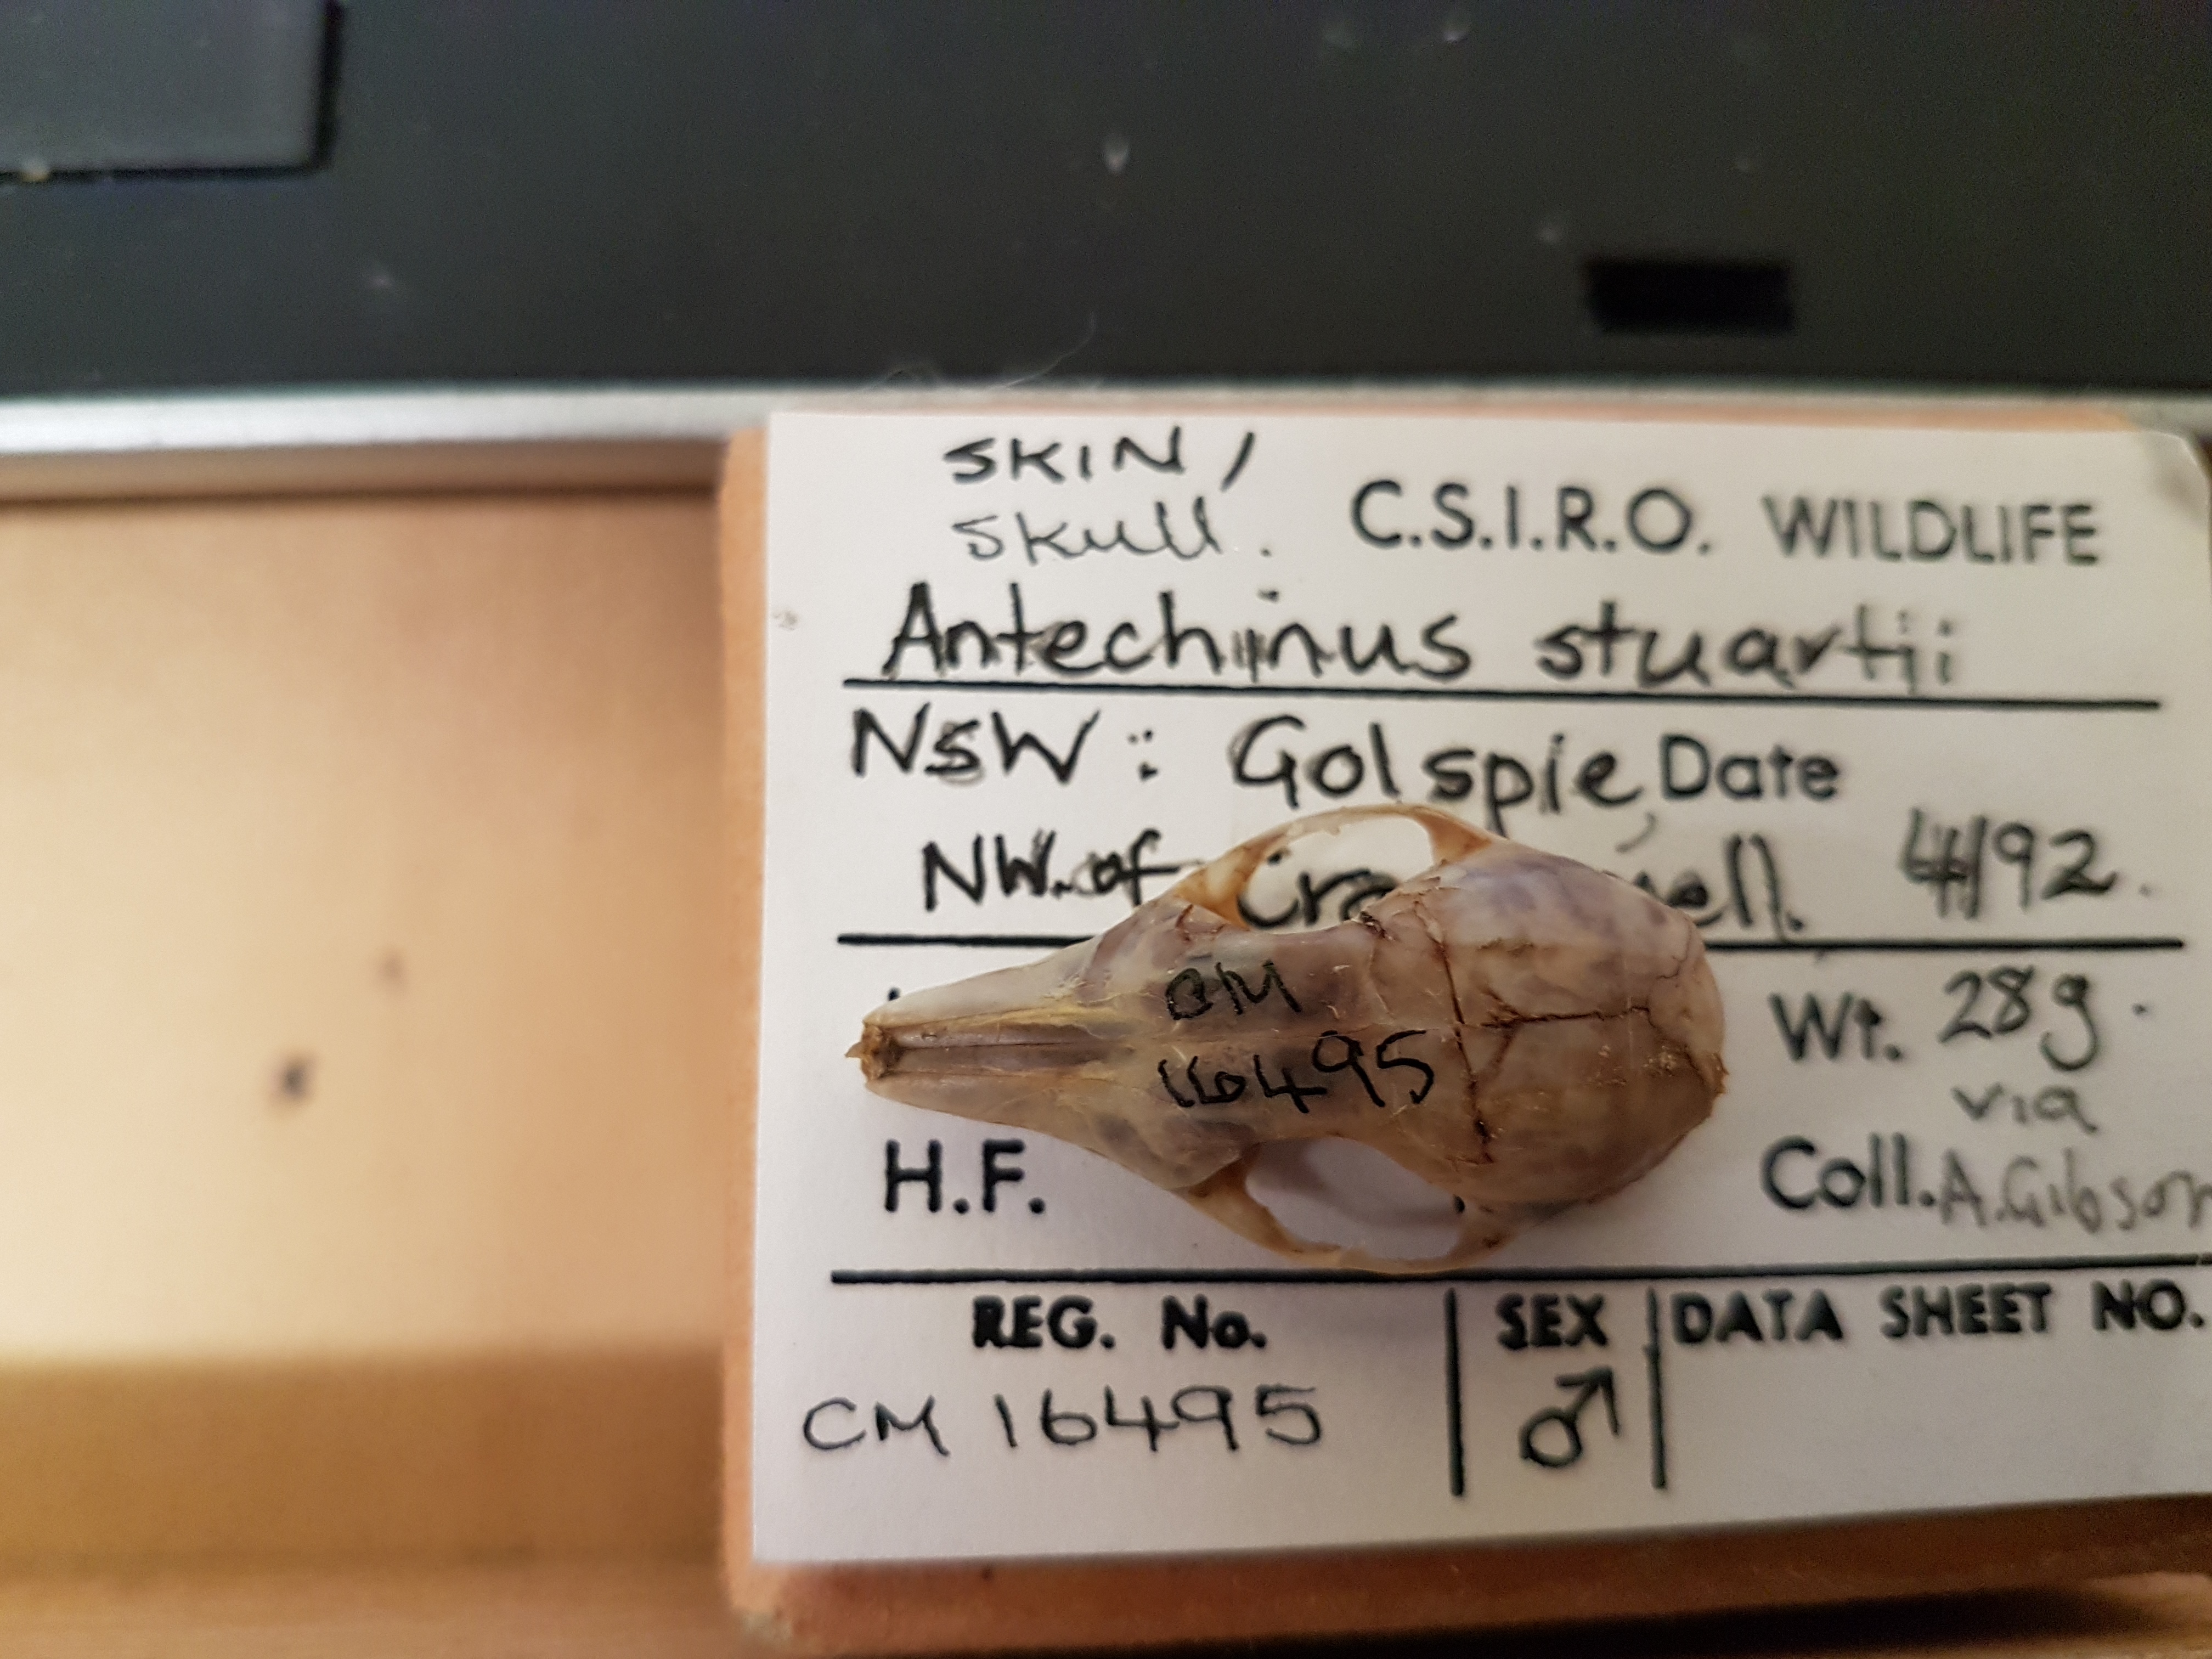 SKIN/ C.S.I.R.O. WILDLIFE
Skull.
Antechinus stuartii
NSW: Golspie, Date
NW. of 4/92.
Wt. 28g.
via
H.F. Coll. A. Gibson
REG. No. SEX DATA SHEET NO.
CM 16495 ♂
CM
16495